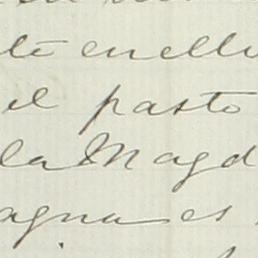 te en ello
el pasto
la Magd
agua es